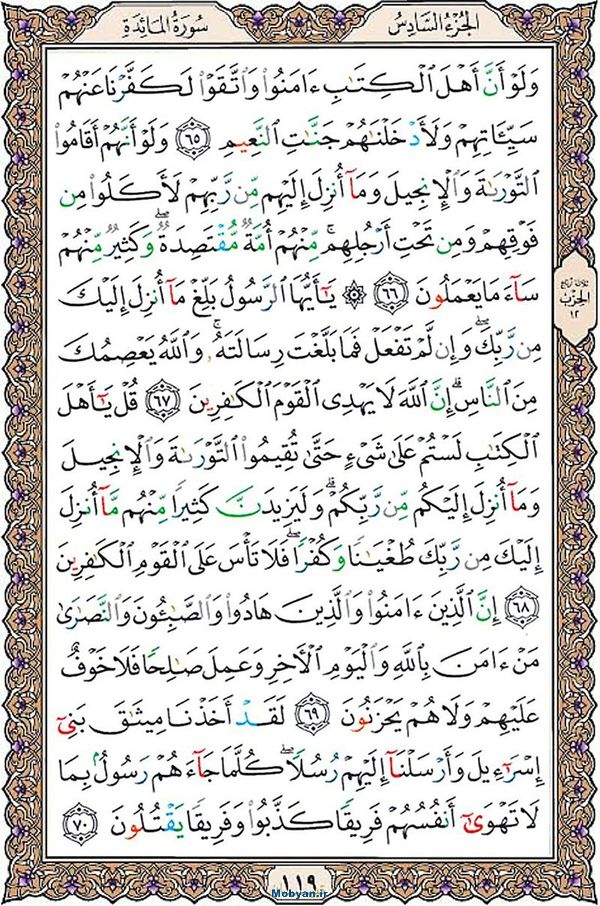 الجُزءُ السَّادِسُ
سُورَةُ المَائِدَةِ
وَلَوْ أَنَّ أَهْلَ ٱلْكِتَٰبِ ءَامَنُوا۟ وَٱتَّقَوْا۟ لَكَفَّرْنَا عَنْهُمْ
سَيِّـَٔاتِهِمْ وَلَأَدْخَلْنَٰهُمْ جَنَّٰتِ ٱلنَّعِيمِ ٦٥ وَلَوْ أَنَّهُمْ أَقَامُوا۟
ٱلتَّوْرَىٰةَ وَٱلْإِنجِيلَ وَمَآ أُنزِلَ إِلَيْهِم مِّن رَّبِّهِمْ لَأَكَلُوا۟ مِن
فَوْقِهِمْ وَمِن تَحْتِ أَرْجُلِهِم ۚ مِّنْهُمْ أُمَّةٌ مُّقْتَصِدَةٌ ۖ وَكَثِيرٌ مِّنْهُمْ
سَآءَ مَا يَعْمَلُونَ ٦٦ ۞ يَٰٓأَيُّهَا ٱلرَّسُولُ بَلِّغْ مَآ أُنزِلَ إِلَيْكَ
مِن رَّبِّكَ ۖ وَإِن لَّمْ تَفْعَلْ فَمَا بَلَّغْتَ رِسَالَتَهُۥ ۚ وَٱللَّهُ يَعْصِمُكَ
مِنَ ٱلنَّاسِ ۗ إِنَّ ٱللَّهَ لَا يَهْدِى ٱلْقَوْمَ ٱلْكَٰفِرِينَ ٦٧ قُلْ يَٰٓأَهْلَ
ٱلْكِتَٰبِ لَسْتُمْ عَلَىٰ شَىْءٍ حَتَّىٰ تُقِيمُوا۟ ٱلتَّوْرَىٰةَ وَٱلْإِنجِيلَ
وَمَآ أُنزِلَ إِلَيْكُم مِّن رَّبِّكُمْ ۗ وَلَيَزِيدَنَّ كَثِيرًا مِّنْهُم مَّآ أُنزِلَ
إِلَيْكَ مِن رَّبِّكَ طُغْيَٰنًا وَكُفْرًا ۖ فَلَا تَأْسَ عَلَى ٱلْقَوْمِ ٱلْكَٰفِرِينَ
٦٨ إِنَّ ٱلَّذِينَ ءَامَنُوا۟ وَٱلَّذِينَ هَادُوا۟ وَٱلصَّٰبِـُٔونَ وَٱلنَّصَٰرَىٰ
مَنْ ءَامَنَ بِٱللَّهِ وَٱلْيَوْمِ ٱلْـَٔاخِرِ وَعَمِلَ صَٰلِحًا فَلَا خَوْفٌ
عَلَيْهِمْ وَلَا هُمْ يَحْزَنُونَ ٦٩ لَقَدْ أَخَذْنَا مِيثَٰقَ بَنِىٓ
إِسْرَٰٓءِيلَ وَأَرْسَلْنَآ إِلَيْهِمْ رُسُلًا ۖ كُلَّمَا جَآءَهُمْ رَسُولٌۢ بِمَا
لَا تَهْوَىٰٓ أَنفُسُهُمْ فَرِيقًا كَذَّبُوا۟ وَفَرِيقًا يَقْتُلُونَ ٧٠
ثلاثة أرباع
الحزب
١٢
١١٩
Mobyan.ir